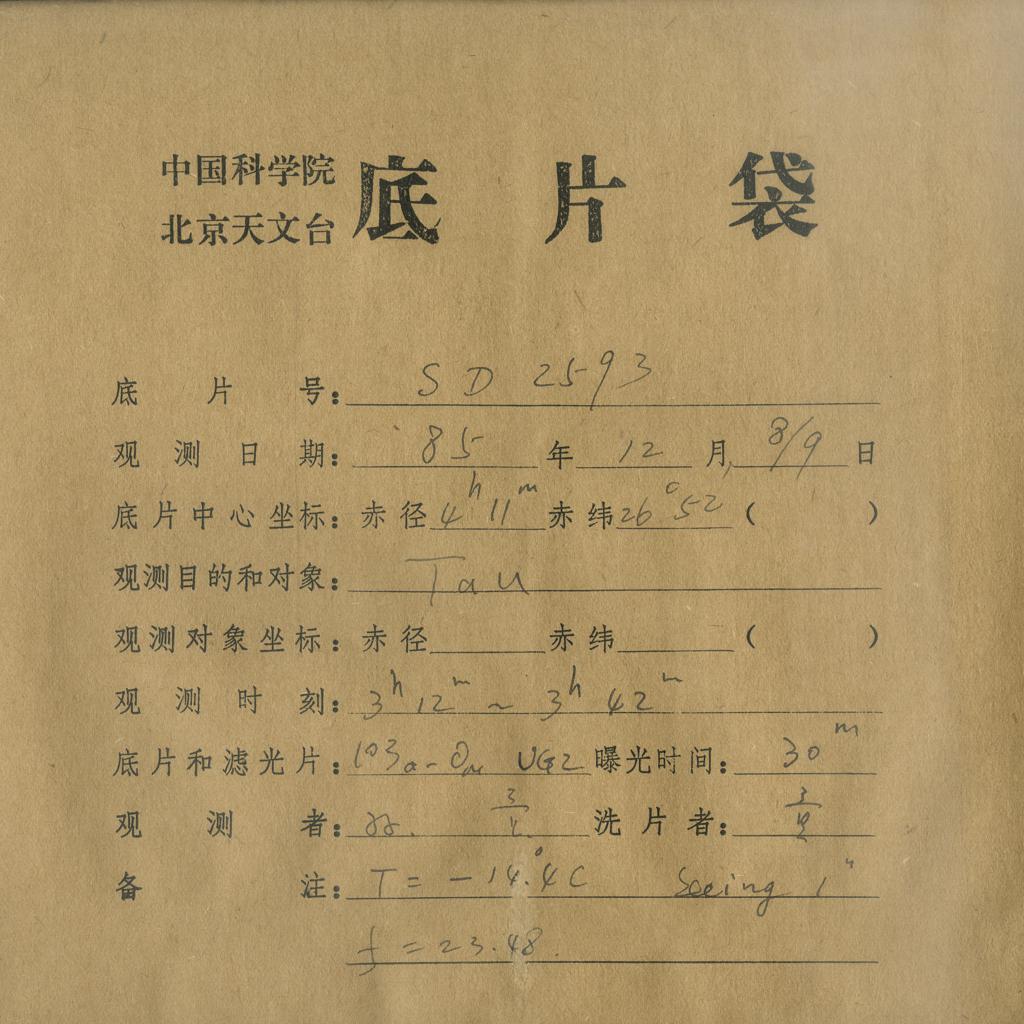 中国科学院
北京天文台 底片袋
底片号: SD 2593
观测日期: 85 年 12 月 8/9 日
底片中心坐标: 赤径 4h 11m 赤纬 26°52 ( )
观测目的和对象: Tau
观测对象坐标: 赤径 赤纬 ( )
观测时刻: 3h 12m ~ 3h 42m
底片和滤光片: 103a-O UG2 曝光时间: 30m
观测者: 洗片者:
备注: T = -14.°4C Seeing 1"
f = 23.48